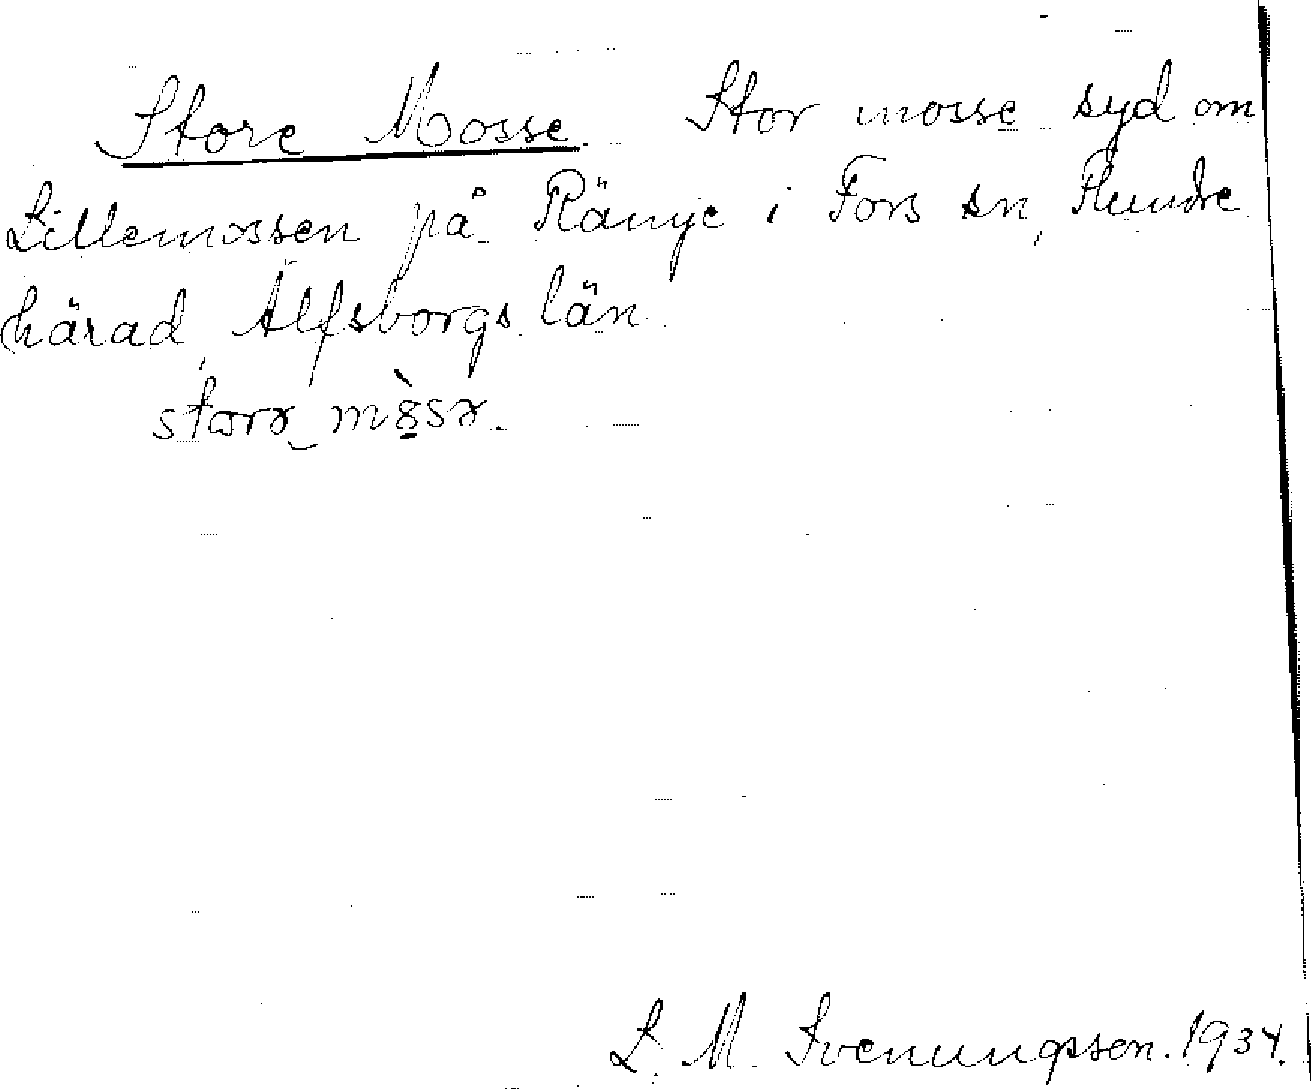 Store Mosse. Stor mosse syd om
Lillemossen på Ränye i Fors sn, Flundre
härad, Älfsborgs län.
L. M. Svenungsson. 1934.